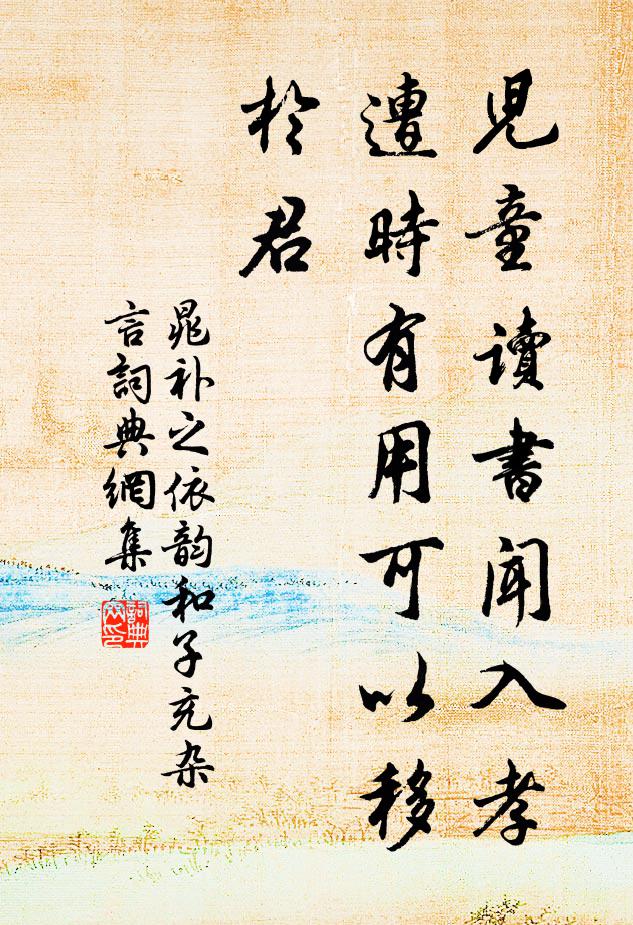 児童讀書聞入孝
遭時有用可以移
於君
晁补之依韵和子充杂
言詞典網集
詞典